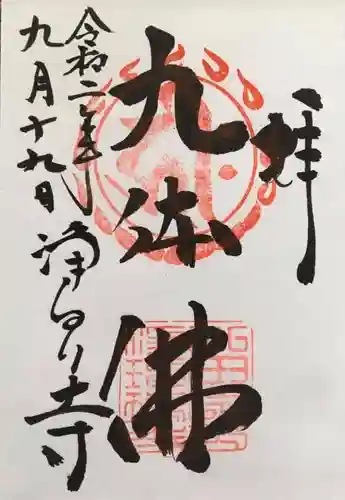 奉拝
九体佛
令和二年
九月十九日
浄るり寺